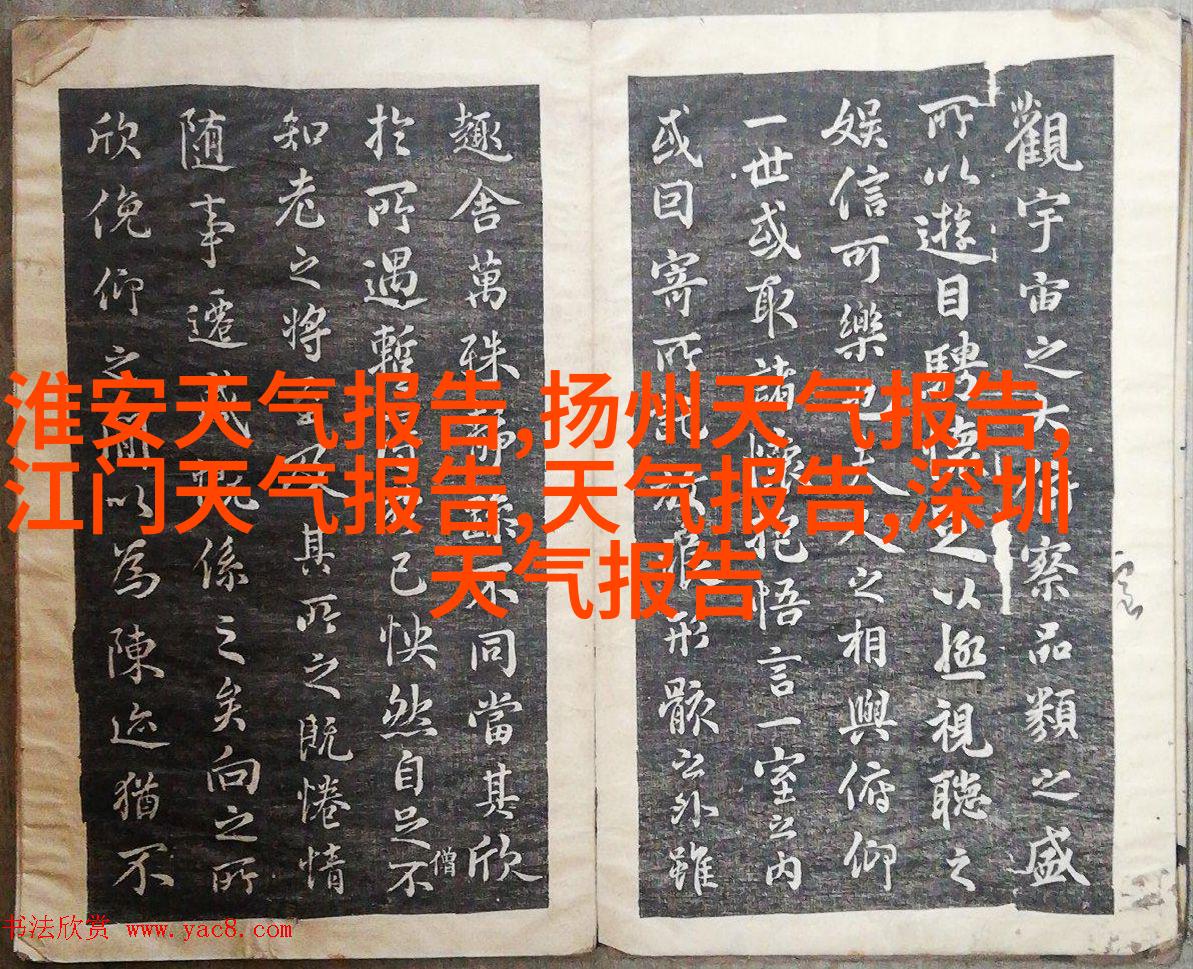 觀宇宙之大俯察品類之盛
所以遊目騁懷足以極視聽之
娱信可樂也夫人之相與俯仰
一世或取諸懷抱悟言一室之内
或因寄所託放浪形骸之外雖
趣舍萬殊静躁不同當其欣
僧
於所遇暫得於己怏然自足不
知老之將至及其所之既惓情
随事遷感慨係之矣向之所
欣俛仰之間以為陳迹猶不
淮安天气报告,扬州天气报告,
江门天气报告,天气报告,深圳
天气报告
书法欣赏 www.yac8.com